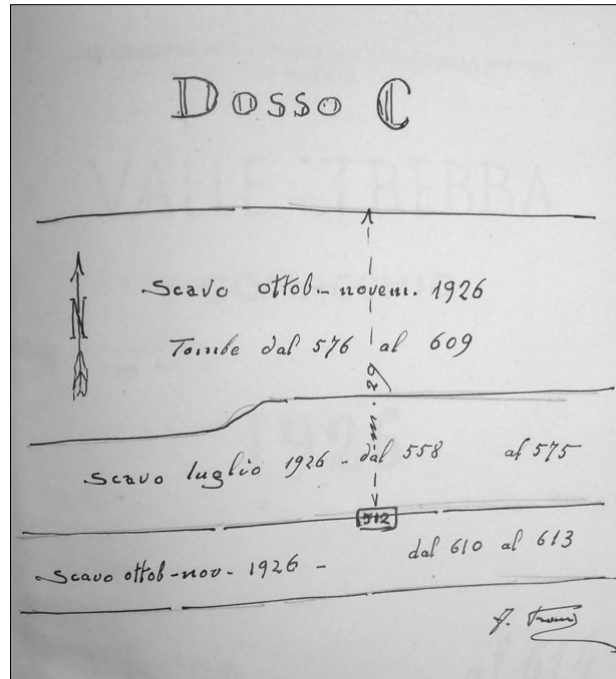 Dosso C
Scavo ottob-novem. 1926
N
Tombe dal 576 al 609
m. 29
Scavo luglio 1926 - dal 558 al 575
512
Scavo ottob-nov- 1926 - dal 610 al 613